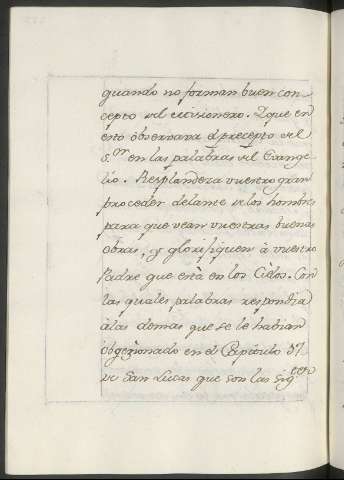 quando no forman buen con-
cepto del Missionero. Dque en
esto observava el precepto del
S.or en las palabras del Evange-
lio. Resplandeza vuestro gran
proceder delante de los hombres
para que vean vuestras buenas
obras, y glorifiquen à vuestro
Padre que està en los Cielos. Con
las quales palabras respondia
à las demas que se le habian
obgecionado en el Capitulo
de San Lucas que son las sig.tes